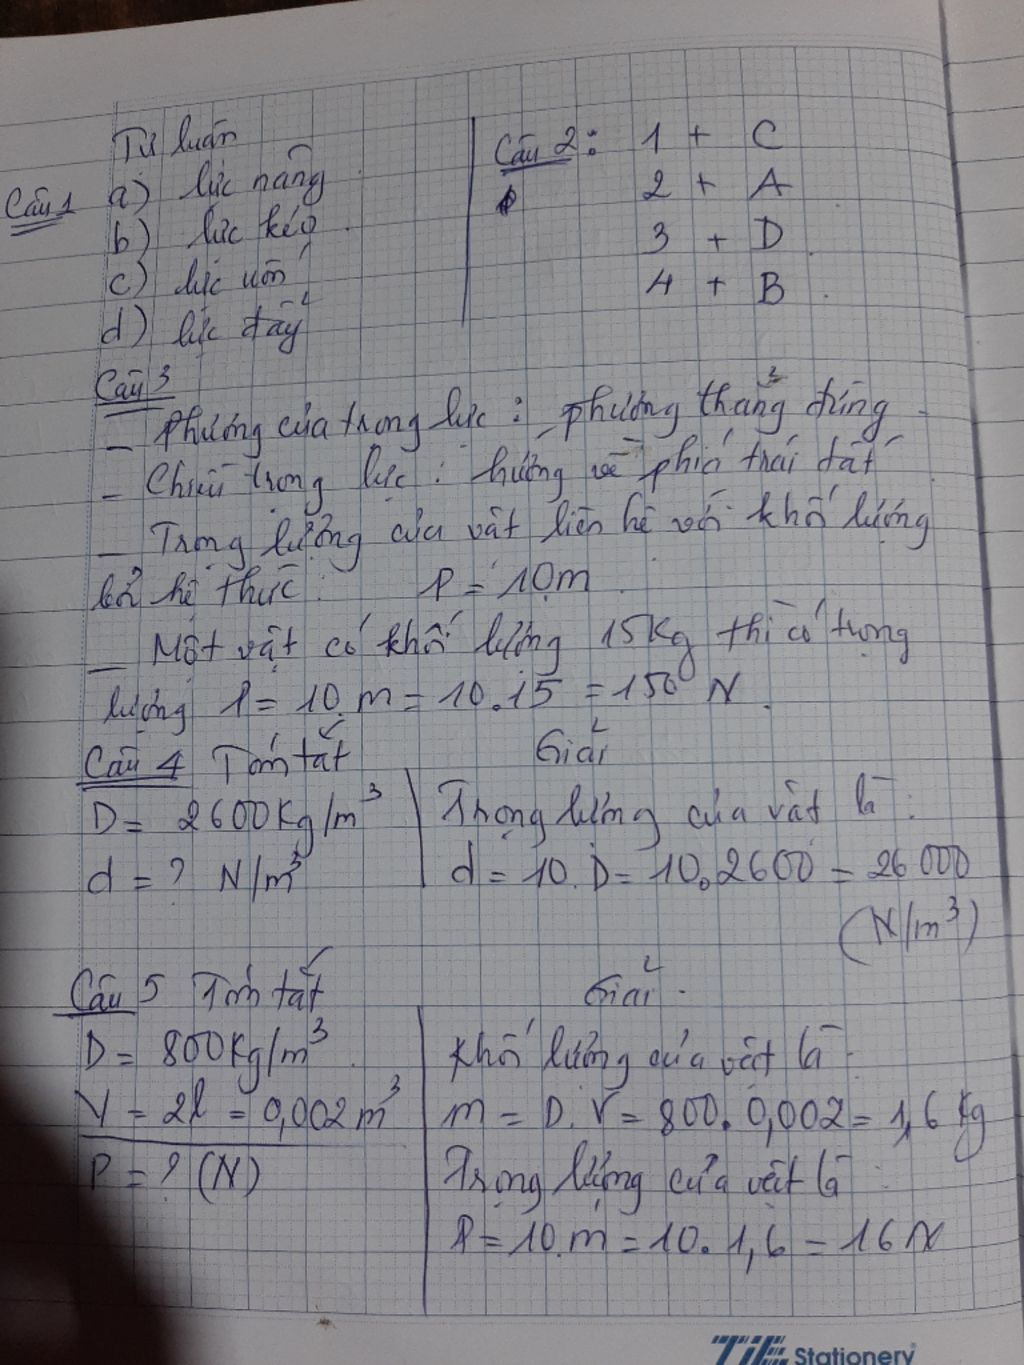 Tự luận
Câu 1 a) lực nâng
b) lực kéo
c) lực uốn
d) lực đẩy
Câu 2: 1 + C
2 + A
3 + D
4 + B
Câu 3
- Phương của trọng lực : phương thẳng đứng
- Chiều trọng lực : hướng về phía trái đất
- Trọng lượng của vật liên hệ với khối lượng
bởi hệ thức : P = 10.m
- Một vật có khối lượng 15kg thì có trọng
lượng P = 10.m = 10.15 = 150 N.
Câu 4 Tóm tắt
D = 2600kg/m³
d = ? N/m³
Giải
Trọng lượng của vật là :
d = 10.D = 10.2600 = 26000
(N/m³)
Câu 5 Tóm tắt
D = 800kg/m³
V = 2l = 0,002m³
P = ? (N)
Giải
Khối lượng của vật là
m = D.V = 800.0,002 = 1,6 kg
Trọng lượng của vật là :
P = 10.m = 10.1,6 = 16 N
TiE Stationery